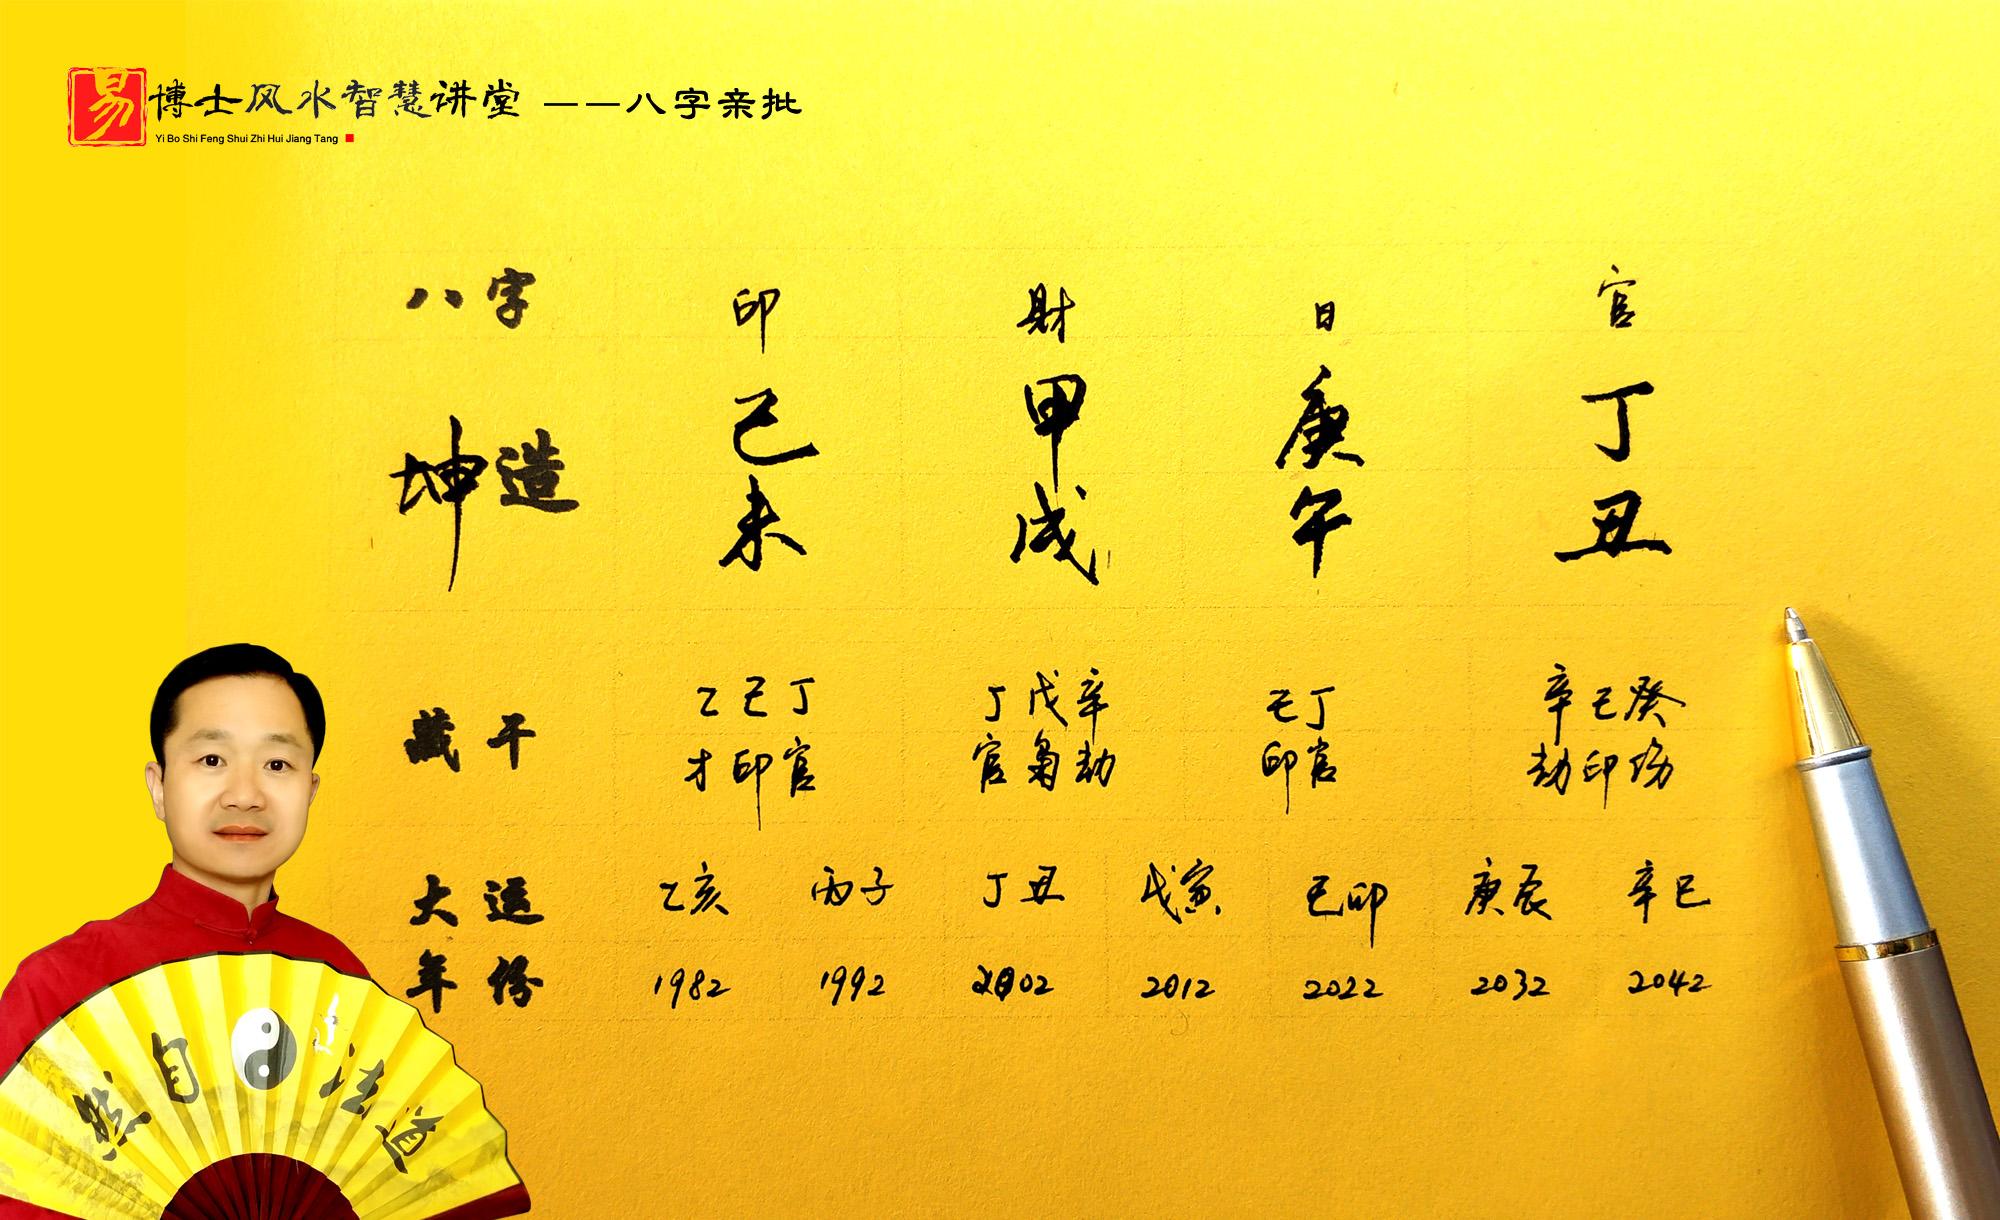 易博士风水智慧讲堂 ——八字亲批
Yi Bo Shi Feng Shui Zhi Hui Jiang Tang
八字 印 財 日 官
坤造 己 甲 庚 丁
未 戌 午 丑
藏干 乙己丁 丁戊辛 己丁 辛己癸
才印官 官枭劫 印官 劫印伤
大运 乙亥 丙子 丁丑 戊寅 己卯 庚辰 辛巳
年份 1982 1992 2002 2012 2022 2032 2042
道法自然